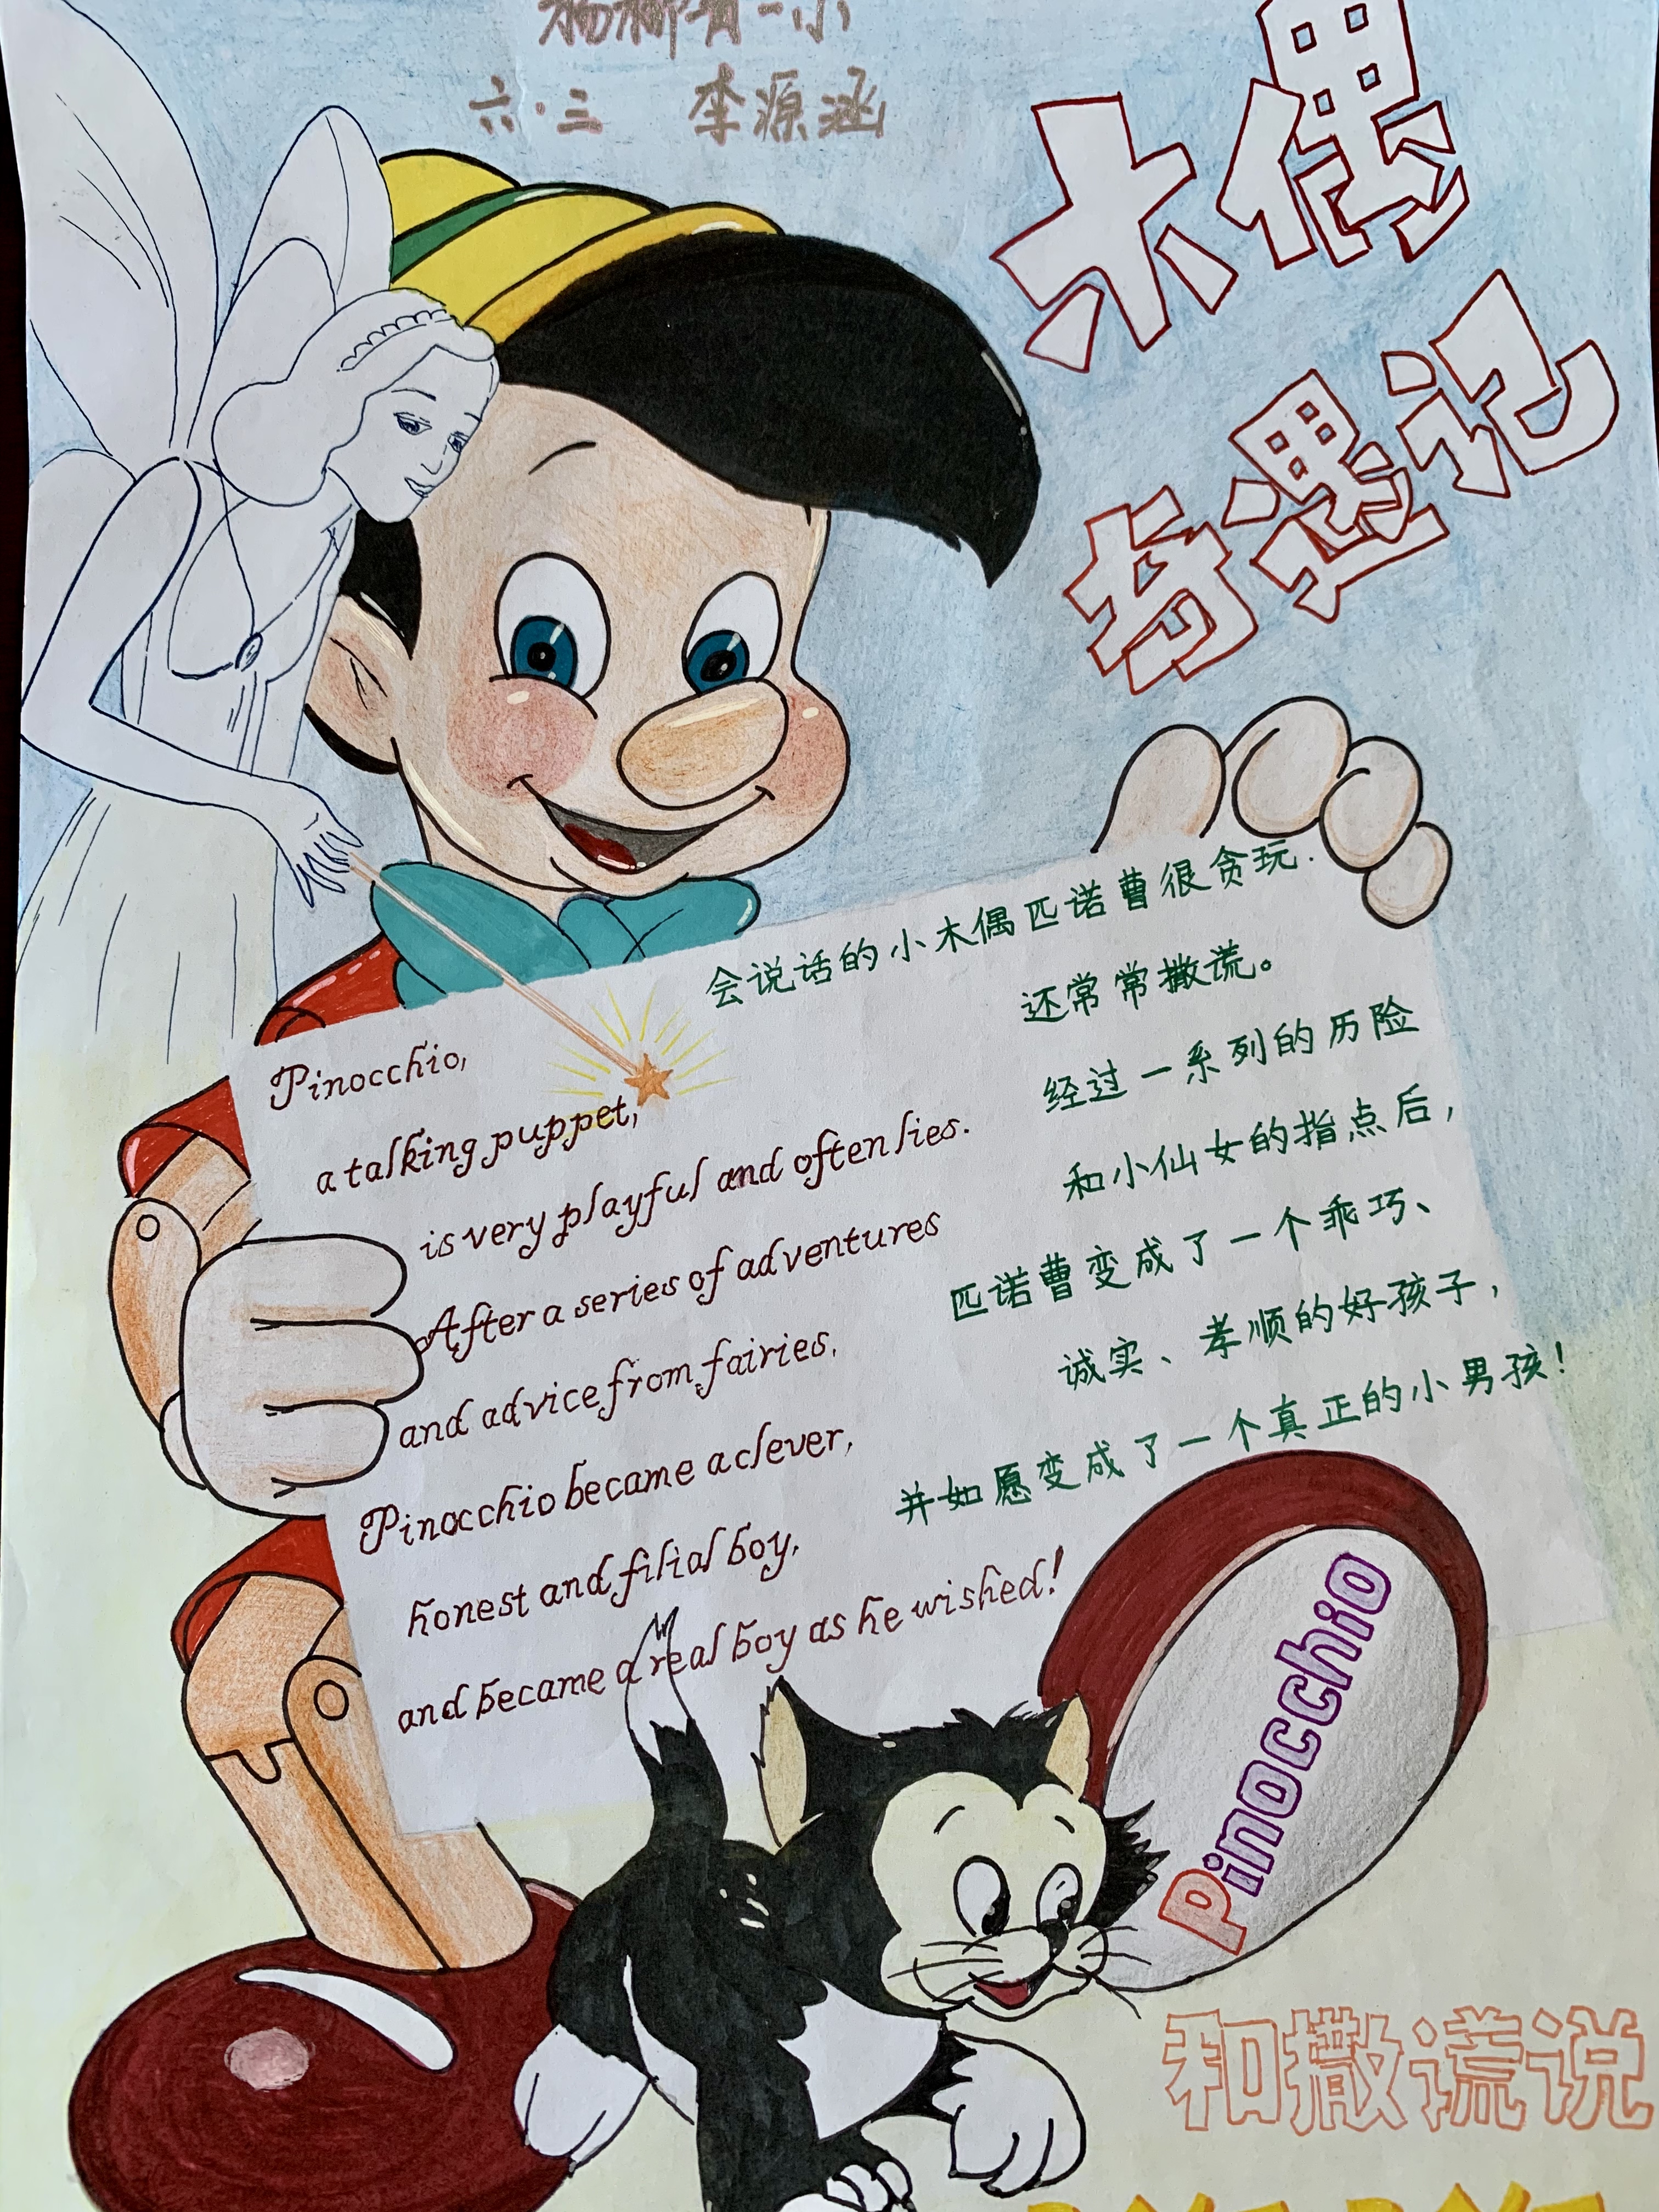 杨柳青一小
六·三 李源涵
木偶
奇遇记
会说话的小木偶匹诺曹很贪玩.
还常常撒谎。
经过一系列的历险
和小仙女的指点后，
匹诺曹变成了一个乖巧、
诚实、孝顺的好孩子，
并如愿变成了一个真正的小男孩！
Pinocchio,
a talking puppet,
is very playful and often lies.
After a series of adventures
and advice from fairies,
Pinocchio became a clever,
honest and filial boy,
and became a real boy as he wished!
Pinocchio
和撒谎说